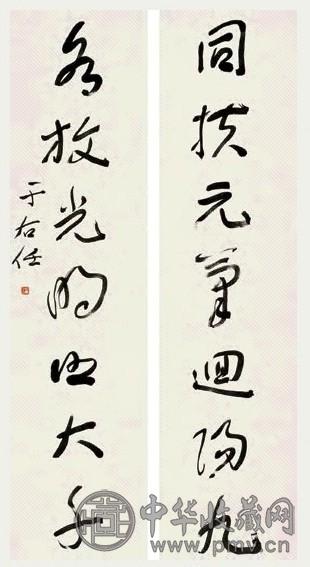 同扶元氣迴陽九
各放光明照大千
于右任
中华收藏网
www.pmv.cn